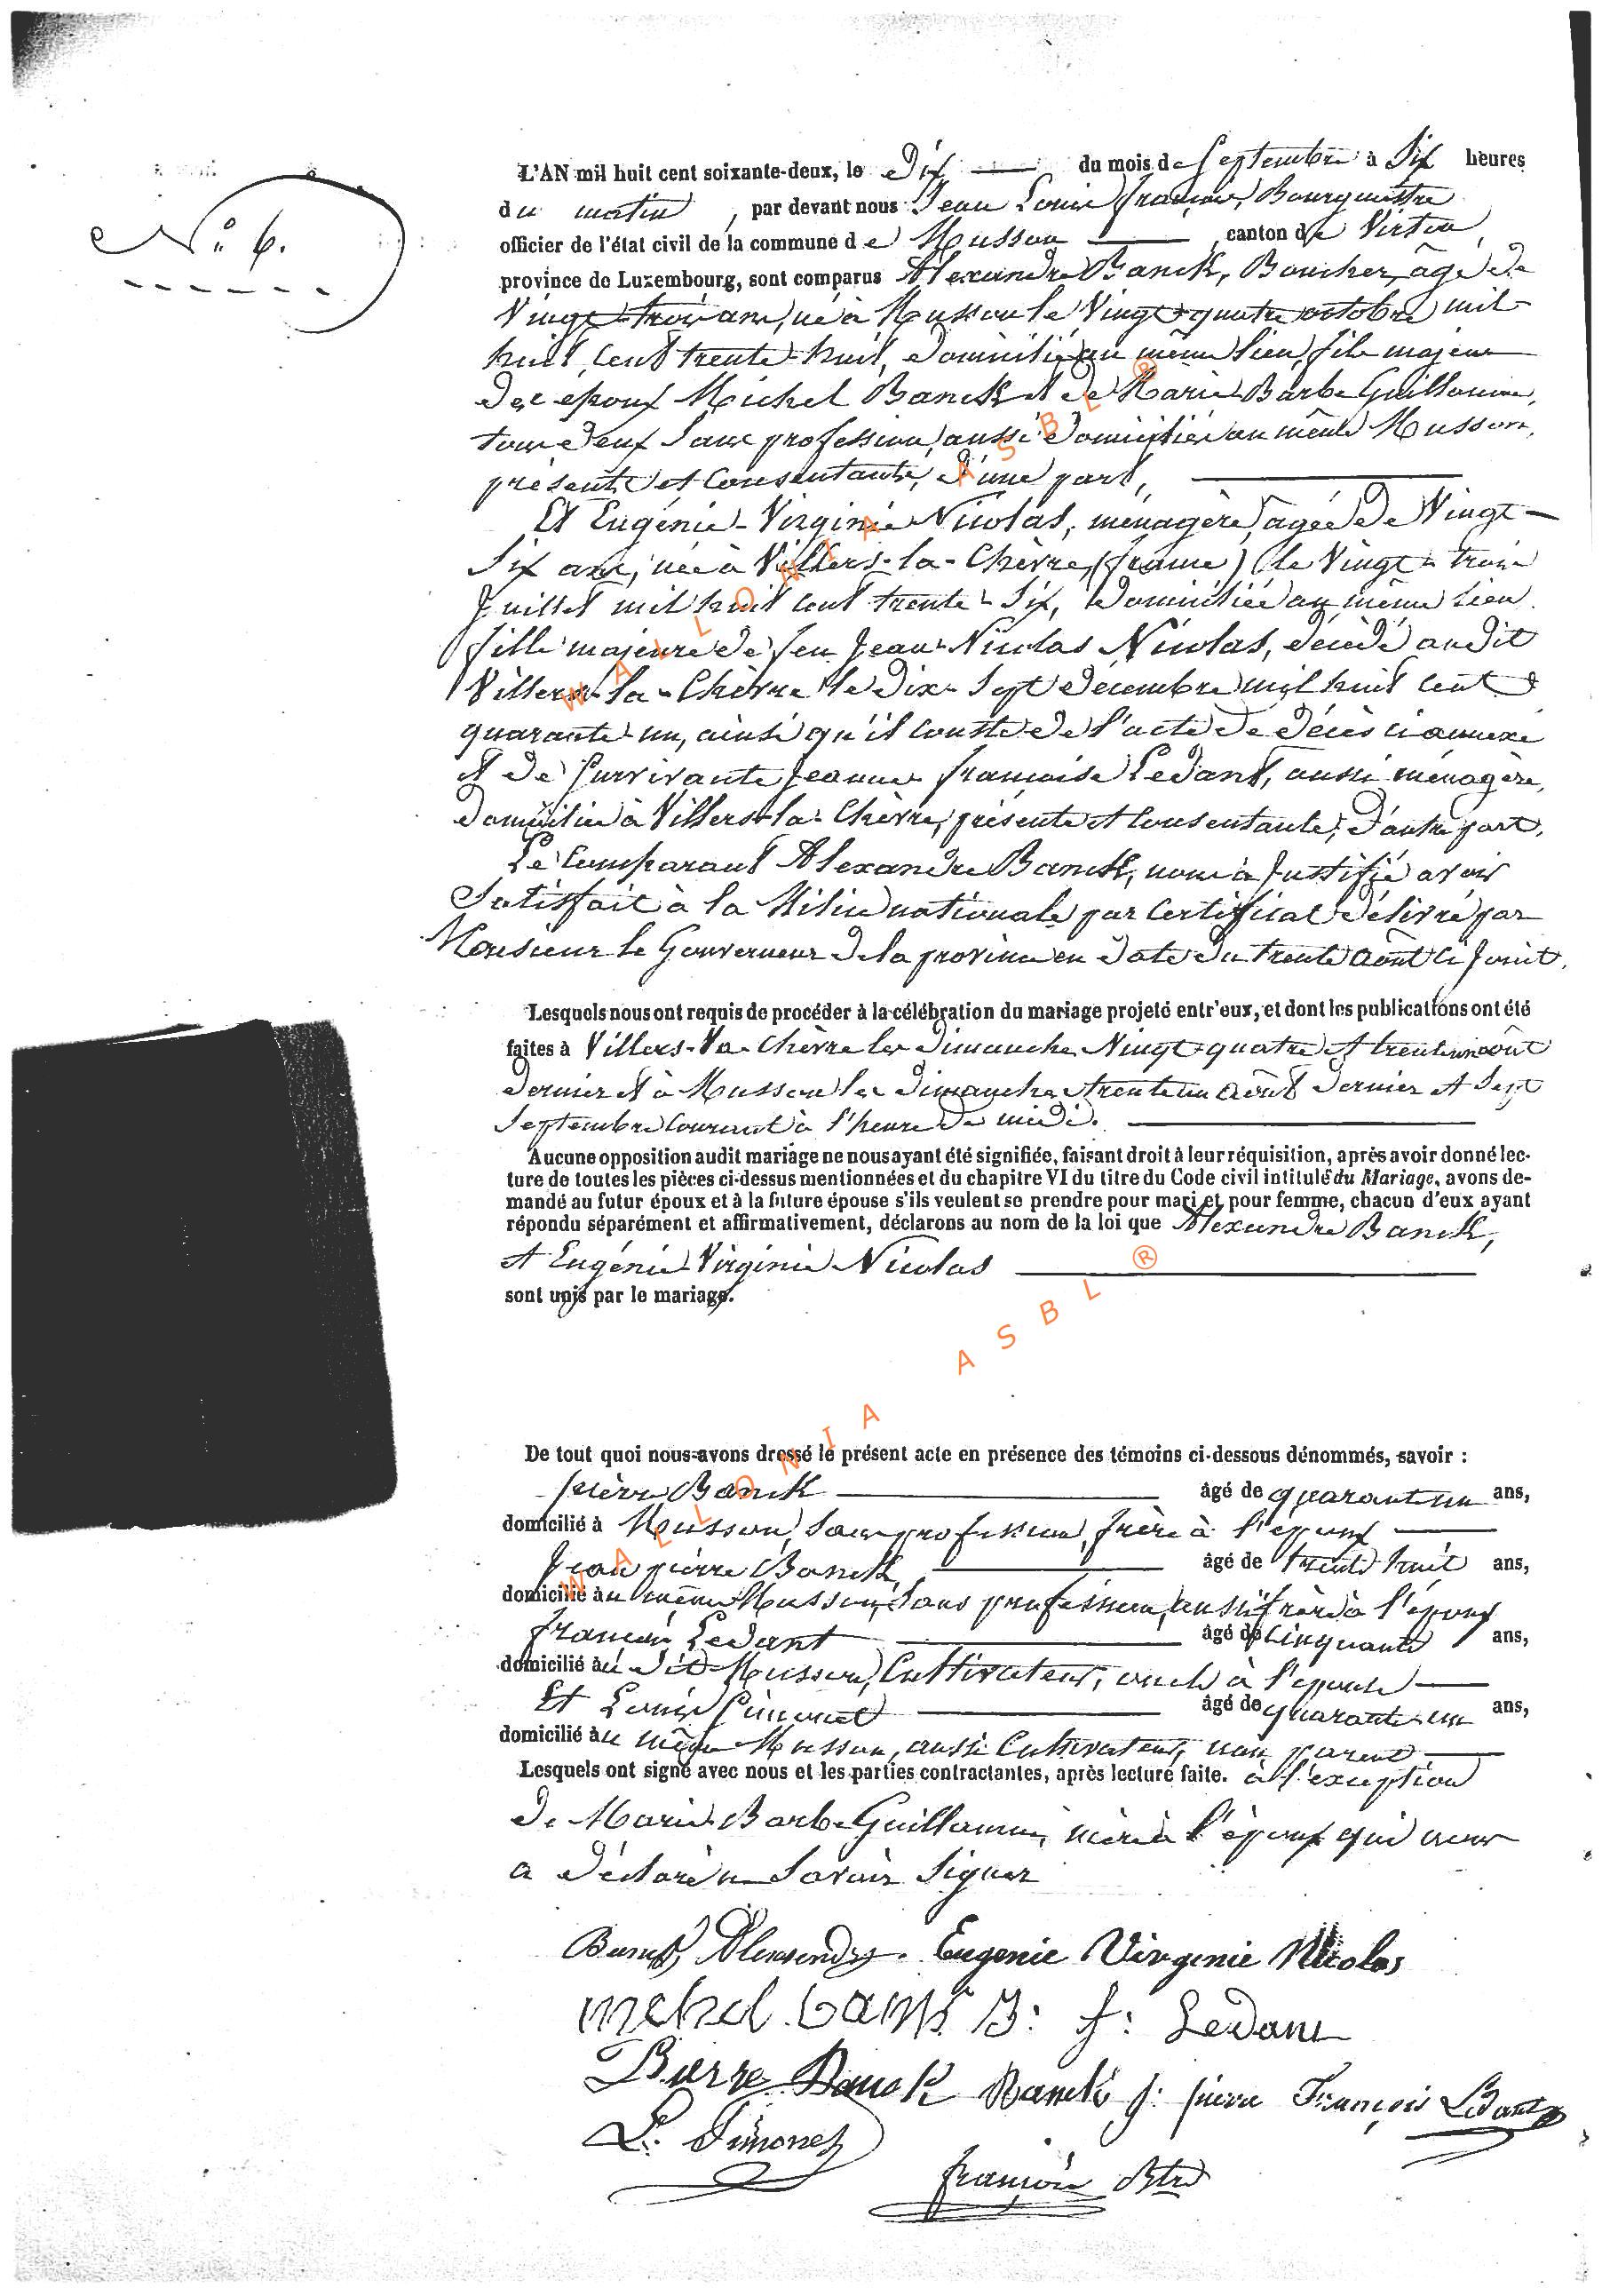 N.° 6.
L'AN mil huit cent soixante-deux, le Dix du mois de Septembre à Six heures
du matin, par devant nous Jean Louis françois, Bourgmestre
officier de l'état civil de la commune de Musson, canton de Virton,
province de Luxembourg, sont comparus Alexandre Banck, Boucher, âgé de
Vingt-trois ans, né à Musson le Vingt-quatre octobre mil
huit cent trente-huit, domicilié au même lieu, fils majeur
des époux Michel Banck et de Marie Barbe Guillaume,
tous deux sans profession, aussi domiciliés au même Musson,
présents et consentants, d'une part,
Et Eugénie-Virginie Nicolas, ménagère, âgée de Vingt-
Six ans, née à Villers-la-Chèvre, (france) le Vingt-trois
Juillet mil huit cent trente-Six, domiciliée au même lieu
fille majeure de feu Jean-Nicolas Nicolas, décédé audit
Villers-la-Chèvre le dix-Sept décembre mil huit cent
quarante-un, ainsi qu'il conste de l'acte de décès ci annexé
et de Survivante Jeanne françoise Ledant, aussi ménagère,
domiciliée à Villers-la-Chèvre, présente et consentante, d'autre part.
Le Comparant Alexandre Banck, nous a Justifié avoir
Satisfait à la Milice nationale par certificat délivré par
Monsieur le Gouverneur de la province en date du trente août ci Joint.
Lesquels nous ont requis de procéder à la célébration du mariage projeté entr'eux, et dont les publications ont été
faites à Villers-la-Chèvre les Dimanches Vingt-quatre et trente un août
dernier et à Musson les dimanches trente un août dernier et Sept
Septembre courant à l'heure de midi.
Aucune opposition audit mariage ne nous ayant été signifiée, faisant droit à leur réquisition, après avoir donné lec-
ture de toutes les pièces ci-dessus mentionnées et du chapitre VI du titre du Code civil intitulé du Mariage, avons de-
mandé au futur époux et à la future épouse s'ils veulent se prendre pour mari et pour femme, chacun d'eux ayant
répondu séparément et affirmativement, déclarons au nom de la loi que Alexandre Banck,
et Eugénie Virginie Nicolas
sont unis par le mariage.
De tout quoi nous avons dressé le présent acte en présence des témoins ci-dessous dénommés, savoir :
pierre Banck âgé de quarante un ans,
domicilié à Musson, Sans profession, frère à l'époux
Jean pierre Banck, âgé de trente huit ans,
domicilié au même Musson, Sans profession, aussi frère à l'époux
françois Ledant âgé de Cinquante ans,
domicilié au dit Musson, Cultivateur, oncle à l'épouse
Et Louis Simonet âgé de quarante-un ans,
domicilié au même Musson, aussi Cultivateur, non parent
Lesquels ont signé avec nous et les parties contractantes, après lecture faite. à l'exception
de Marie Barbe Guillaume, mère à l'époux qui nous
a déclaré ne Savoir Signer
Banck Alexandre. Eugenie Virginie Nicolas
michel Banck J: f: Ledant
Pierre Banck Banck J: pierre François Ledant
L. Simonet
françois Btre
WALLONIA ASBL ®
WALLONIA ASBL ®